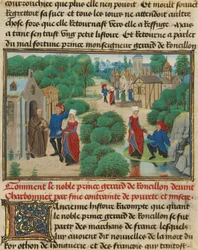 couronchie que plus elle nen pouoit Et moult souuent
regretoit sa suer et tous les Jours ne attendoit aultre
chose fors que elle retournast vers elle a reffuge
a tant sen taist ung petit listoire Et retourne a parler
du mal fortune prince monseigneur gerard de Roncillon
Comment le noble prince gerard de Roncillon deuint
Charbonnier par fine contrainte de pourete et misere
listoire Racompte que quant
le noble prince gerard de Roncillon se fut
party des marchans de france les quelz
luy auoient dit nouuelles de la mort du
Roy othon de honguerie et des francois que